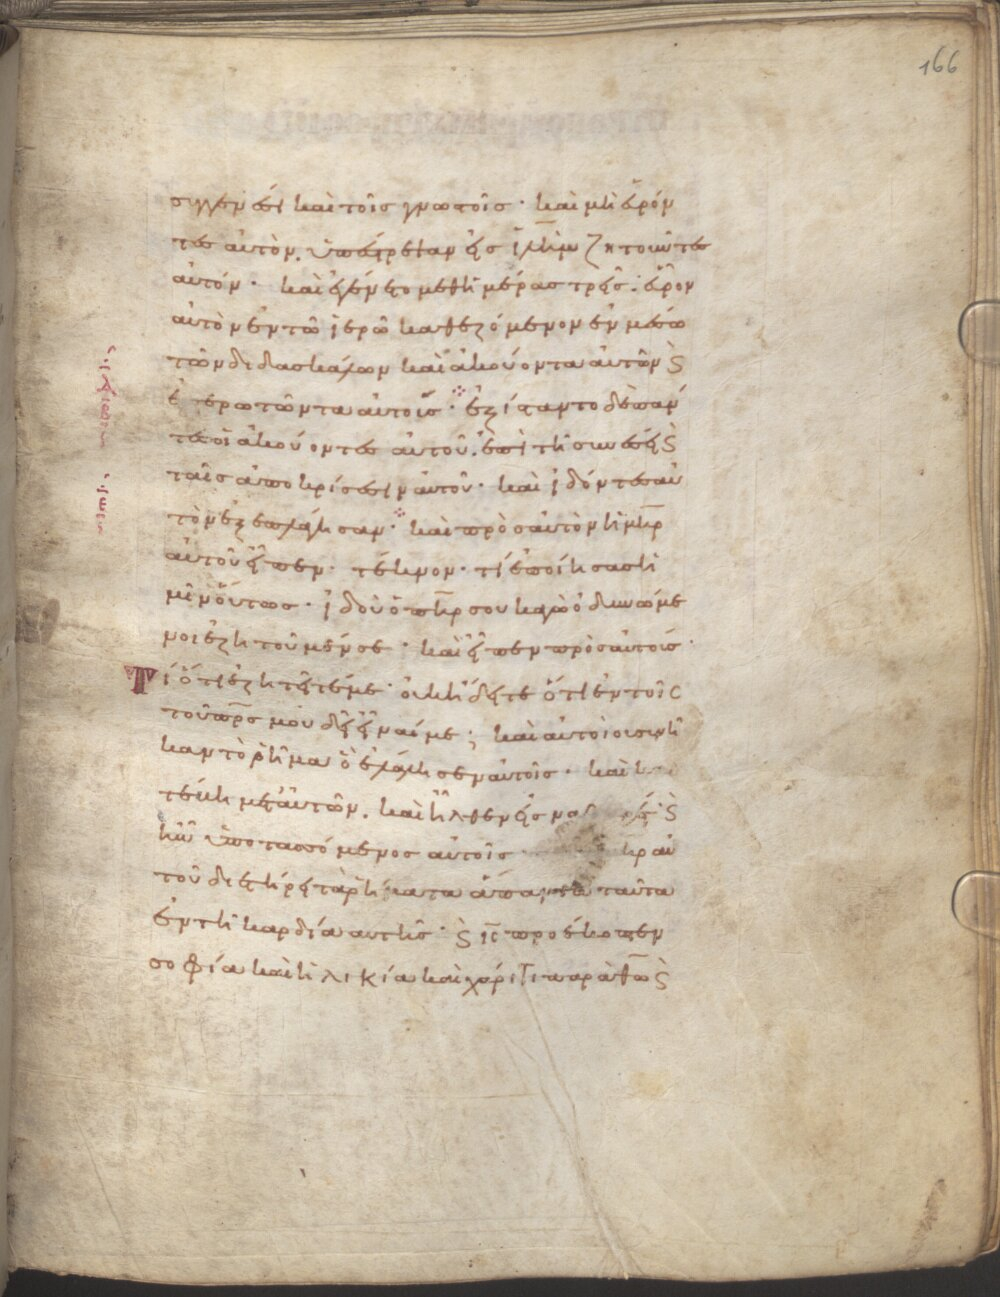 166
συγγενέσι καὶ τοῖς γνωστοῖς · καὶ μὴ εὑρόν
τες αὐτὸν. ὑπέστρεψαν εἰς ἱλὴμ ζητοῦντες
αὐτόν · καὶ ἐγένετο μεθ ἡμέρας τρεῖς · εὗρον
αὐτὸν ἐν τῶ ἱερῶ καθεζόμενον ἐν μέσω
τῶν διδασκάλων καὶ ἀκούοντα αὐτῶν ϗ
ἐπερωτῶντα αὐτοὺς · ἐξίσταντο δὲ πάν
τες οἱ ἀκούοντες αὐτοῦ. ἐπὶ τῆ συνέσει ϗ
ταῖς ἀποκρίσεσιν αὐτοῦ · καὶ ἰδόντες αὐ
τὸν ἐξεπλάγησαν · καὶ πρὸς αὐτὸν ἡ μηρ
αὐτοῦ εἶπεν · τέκνον · τί ἐποίησας ἡ
μῖν οὕτως · ἰδοὺ ὁ πηρ σου κἀγὼ ὀδυνώμε
νοι ἐζητοῦμέν σε · καὶ εἶπεν πρὸς αὐτούς ·
Τί ὅτι ἐζητεῖτέ με · οὐκ ἤδειτε ὅτι ἐν τοῖς
τοῦ πρς μου δεῖ εἶναί με ; καὶ αὐτοὶ οὐ συνῆ
καν τὸ ῥῆμα ὃ ἐλάλησεν αὐτοῖς · καὶ
μετ αὐτῶν. καὶ ἦλθεν εἰς ϗ
ἦν ὑποτασσόμενος αὐτοῖς · αὐ
τοῦ διετήρει τὰ ῥήματα ἅπαντα ταῦτα
ἐν τῆ καρδία αὐτῆς · ϗ ις προέκοπτεν
σοφία καὶ ἡλικία καὶ χάριτι παρὰ θω ϗ